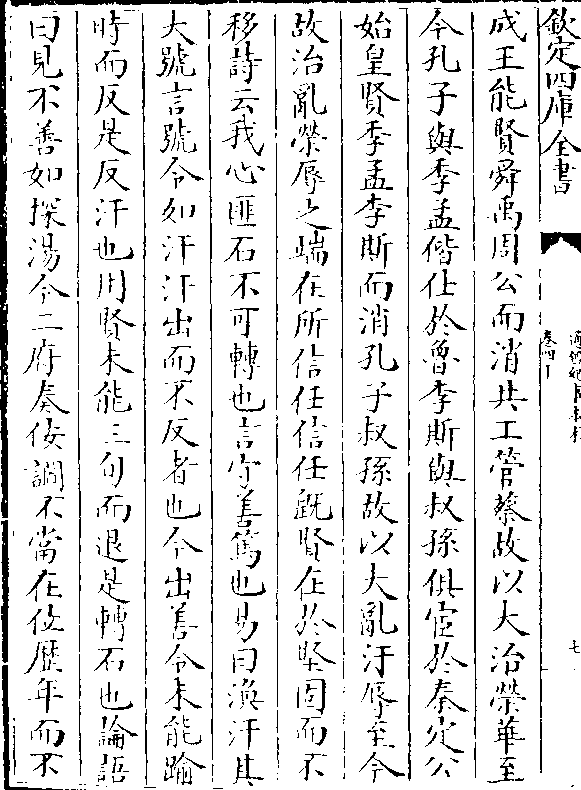 欽定四庫全書
成王能賢舜禹周公而消共工管蔡故以大治榮華至
今孔子與季孟偕仕於魯李斯與叔孫俱宦於秦定公
始皇賢季孟李斯而消孔子叔孫故以大亂汙辱至今
故治亂榮辱之端在所信任信任既賢在於堅固而不
移詩云我心匪石不可轉也言守善篤也易曰渙汗其
大號言號令如汗汗出而不反者也今出善令未能踰
時而反是反汗也用賢未能三旬而退是轉石也論語
曰見不善如探湯今二府奏佞讇不當在位歷年而不